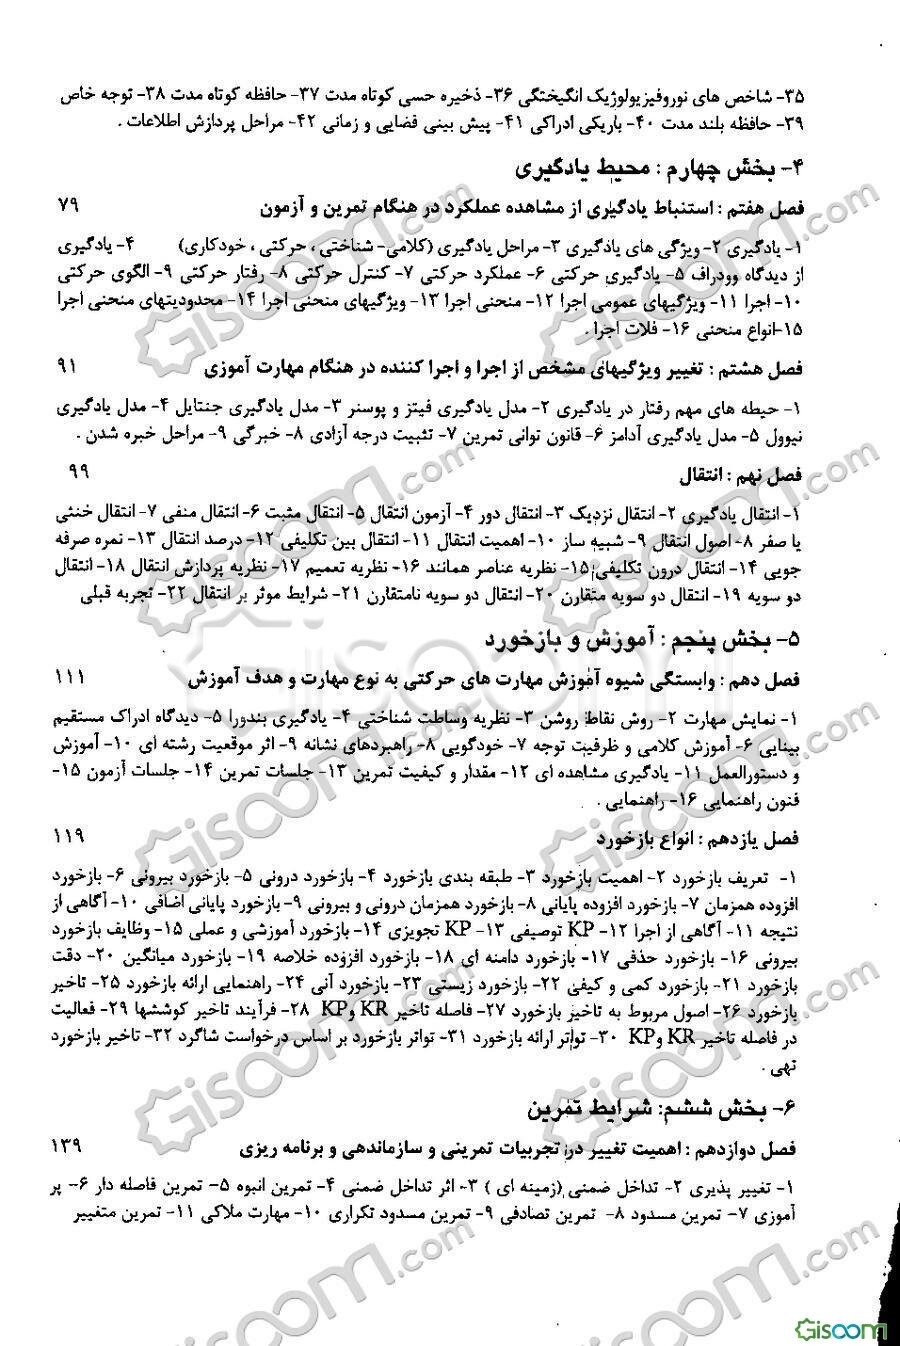 ۳۵- شاخص های نوروفیزیولوژیک انگیختگی ۳۶- ذخیره حسی کوتاه مدت ۳۷- حافظه کوتاه مدت ۳۸- توجه خاص
۳۹- حافظه بلند مدت ۴۰- باریکی ادراکی ۴۱- پیش بینی فضایی و زمانی ۴۲- مراحل پردازش اطلاعات .
۴- بخش چهارم : محیط یادگیری
فصل هفتم : استنباط یادگیری از مشاهده عملکرد در هنگام تمرین و آزمون ۷۹
۱- یادگیری ۲- ویژگی های یادگیری ۳- مراحل یادگیری (کلامی- شناختی ، حرکتی ، خودکاری) ۴- یادگیری
از دیدگاه وودراف ۵- یادگیری حرکتی ۶- عملکرد حرکتی ۷- کنترل حرکتی ۸- رفتار حرکتی ۹- الگوی حرکتی
۱۰- اجرا ۱۱- ویژگیهای عمومی اجرا ۱۲- منحنی اجرا ۱۳- ویژگیهای منحنی اجرا ۱۴- محدودیتهای منحنی اجرا
۱۵-انواع منحنی ۱۶- فلات اجرا .
فصل هشتم : تغییر ویژگیهای مشخص از اجرا و اجرا کننده در هنگام مهارت آموزی ۹۱
۱- حیطه های مهم رفتار در یادگیری ۲- مدل یادگیری فیتز و پوسنر ۳- مدل یادگیری جنتایل ۴- مدل یادگیری
نیوول ۵- مدل یادگیری آدامز ۶- قانون توانی تمرین ۷- تثبیت درجه آزادی ۸- خبرگی ۹- مراحل خبره شدن .
فصل نهم : انتقال ۹۹
۱- انتقال یادگیری ۲- انتقال نزدیک ۳- انتقال دور ۴- آزمون انتقال ۵- انتقال مثبت ۶- انتقال منفی ۷- انتقال خنثی
یا صفر ۸- اصول انتقال ۹- شبیه ساز ۱۰- اهمیت انتقال ۱۱- انتقال بین تکلیفی ۱۲- درصد انتقال ۱۳- نمره صرفه
جویی ۱۴- انتقال درون تکلیفی ۱۵- نظریه عناصر همانند ۱۶- نظریه تعمیم ۱۷- نظریه پردازش انتقال ۱۸- انتقال
دو سویه ۱۹- انتقال دو سویه متقارن ۲۰- انتقال دو سویه نامتقارن ۲۱- شرایط موثر بر انتقال ۲۲- تجربه قبلی
۵- بخش پنجم : آموزش و بازخورد
فصل دهم : وابستگی شیوه آموزش مهارت های حرکتی به نوع مهارت و هدف آموزش ۱۱۱
۱- نمایش مهارت ۲- روش نقاط روشن ۳- نظریه وساطت شناختی ۴- یادگیری بندورا ۵- دیدگاه ادراک مستقیم
بینایی ۶- آموزش کلامی و ظرفیت توجه ۷- خودگویی ۸- راهبردهای نشانه ۹- اثر موقعیت رشته ای ۱۰- آموزش
و دستورالعمل ۱۱- یادگیری مشاهده ای ۱۲- مقدار و کیفیت تمرین ۱۳- جلسات تمرین ۱۴- جلسات آزمون ۱۵-
فنون راهنمایی ۱۶- راهنمایی .
فصل یازدهم : انواع بازخورد ۱۱۹
۱- تعریف بازخورد ۲- اهمیت بازخورد ۳- طبقه بندی بازخورد ۴- بازخورد درونی ۵- بازخورد بیرونی ۶- بازخورد
افزوده همزمان ۷- بازخورد افزوده پایانی ۸- بازخورد همزمان درونی و بیرونی ۹- بازخورد پایانی اضافی ۱۰- آگاهی از
نتیجه ۱۱- آگاهی از اجرا ۱۲- KP توصیفی ۱۳- KP تجویزی ۱۴- بازخورد آموزشی و عملی ۱۵- وظایف بازخورد
بیرونی ۱۶- بازخورد حذفی ۱۷- بازخورد دامنه ای ۱۸- بازخورد افزوده خلاصه ۱۹- بازخورد میانگین ۲۰- دقت
بازخورد ۲۱- بازخورد کمی و کیفی ۲۲- بازخورد زیستی ۲۳- بازخورد آنی ۲۴- راهنمایی ارائه بازخورد ۲۵- تاخیر
بازخورد ۲۶- اصول مربوط به تاخیر بازخورد ۲۷- فاصله تاخیر KR وKP ۲۸- فرآیند تاخیر کوششها ۲۹- فعالیت
در فاصله تاخیر KR وKP ۳۰- تواتر ارائه بازخورد ۳۱- تواتر بازخورد بر اساس درخواست شاگرد ۳۲- تاخیر بازخورد
تهی .
۶- بخش ششم: شرایط تمرین
فصل دوازدهم : اهمیت تغییر در تجربیات تمرینی و سازماندهی و برنامه ریزی ۱۳۹
۱- تغییر پذیری ۲- تداخل ضمنی (زمینه ای ) ۳- اثر تداخل ضمنی ۴- تمرین انبوه ۵- تمرین فاصله دار ۶- پر
آموزی ۷- تمرین مسدود ۸- تمرین تصادفی ۹- تمرین مسدود تکراری ۱۰- مهارت ملاکی ۱۱- تمرین متغییر
Gisoom